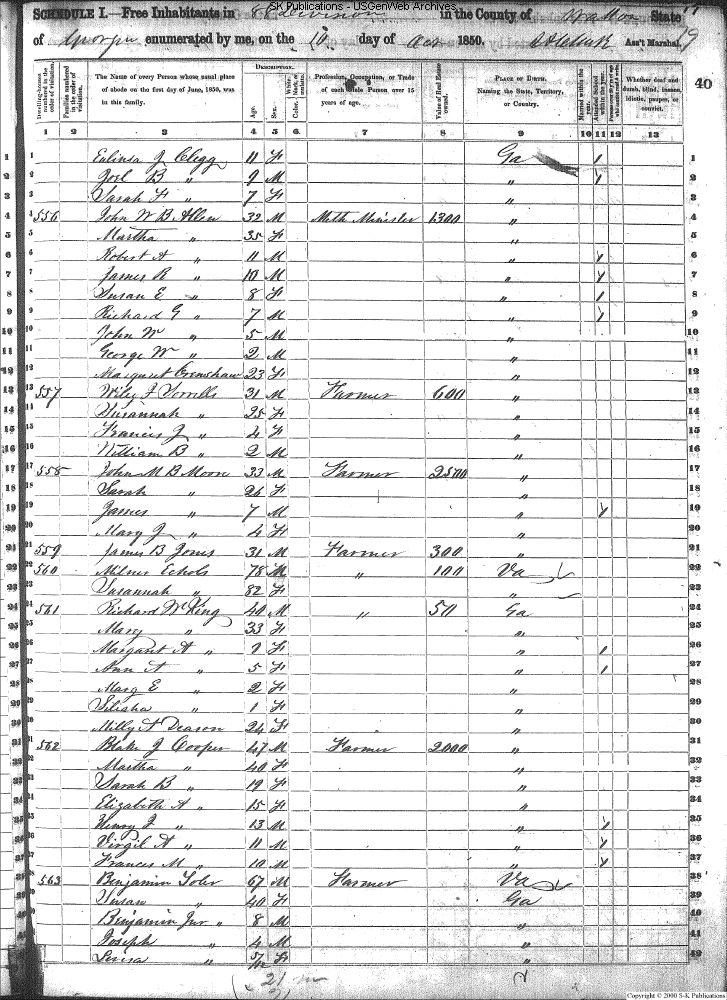 SK Publications - USGenWeb Archives
SCHEDULE I.—Free Inhabitants in division in the County of Walton State
of Georgia enumerated by me, on the 10 day of Oct 1850. Ass't Marshal.
40
Dwelling-houses numbered in the order of visitation.
Families numbered in the order of visitation.
The Name of every Person whose usual place of abode on the first day of June, 1850, was in this family.
DESCRIPTION.
Age.
Sex.
Color, White, black, or mulatto.
Profession, Occupation, or Trade of each Male Person over 15 years of age.
Value of Real Estate owned.
PLACE OF BIRTH. Naming the State, Territory, or Country.
Married within the year.
Attended School within the year.
Persons over 20 y'rs of age who cannot read & write.
Whether deaf and dumb, blind, insane, idiotic, pauper, or convict.
1 2 3 4 5 6 7 8 9 10 11 12 13
1 J Clegg 11 F Ga / 1
2 Joel B " 9 M " / 2
3 Sarah F " 7 F " 3
4 556 John W B Allen 32 M Meth Minister 1300 " 4
5 Martha " 35 F " 5
6 Robert A " 11 M " / 6
7 James R " 10 M " / 7
8 Susan E " 8 F " / 8
9 Richard G " 7 M " / 9
10 John W " 5 M " 10
11 George W " 2 M " 11
12 Margaret Crenshaw 23 F " 12
13 557 Wiley J Sorrells 31 M Farmer 600 " 13
14 Susannah " 25 F " 14
15 Francis J " 4 F " 15
16 William B " 2 M " 16
17 558 John M B Moore 33 M Farmer 2500 " 17
18 Sarah " 26 F " 18
19 James " 7 M " / 19
20 Mary J " 4 F " 20
21 559 James B Jones 31 M Farmer 300 " 21
22 560 Milner Echols 78 M " 100 Va 22
23 Susannah " 82 F " 23
24 561 Richard W King 40 M " 50 Ga 24
25 Mary " 33 F " 25
26 Margaret A " 7 F " / 26
27 Ann A " 5 F " / 27
28 Mary E " 2 F " 28
29 " 1 F " 29
30 Milly A Deason 24 F " 30
31 562 Blake J Cooper 47 M Farmer 2000 " 31
32 Martha " 40 F " 32
33 Sarah B " 19 F " 33
34 Elizabeth A " 15 F " 34
35 Henry J " 13 M " / 35
36 Virgil A " 11 M " / 36
37 Frances M " 10 M " / 37
38 563 Benjamin 67 M Farmer Va 38
39 Susan " 40 F Ga 39
40 Benjamin Jur " 8 M " 40
41 Joseph " 4 M " 41
42 " 5/12 F " 42
21 m
Copyright © 2000 S-K Publications